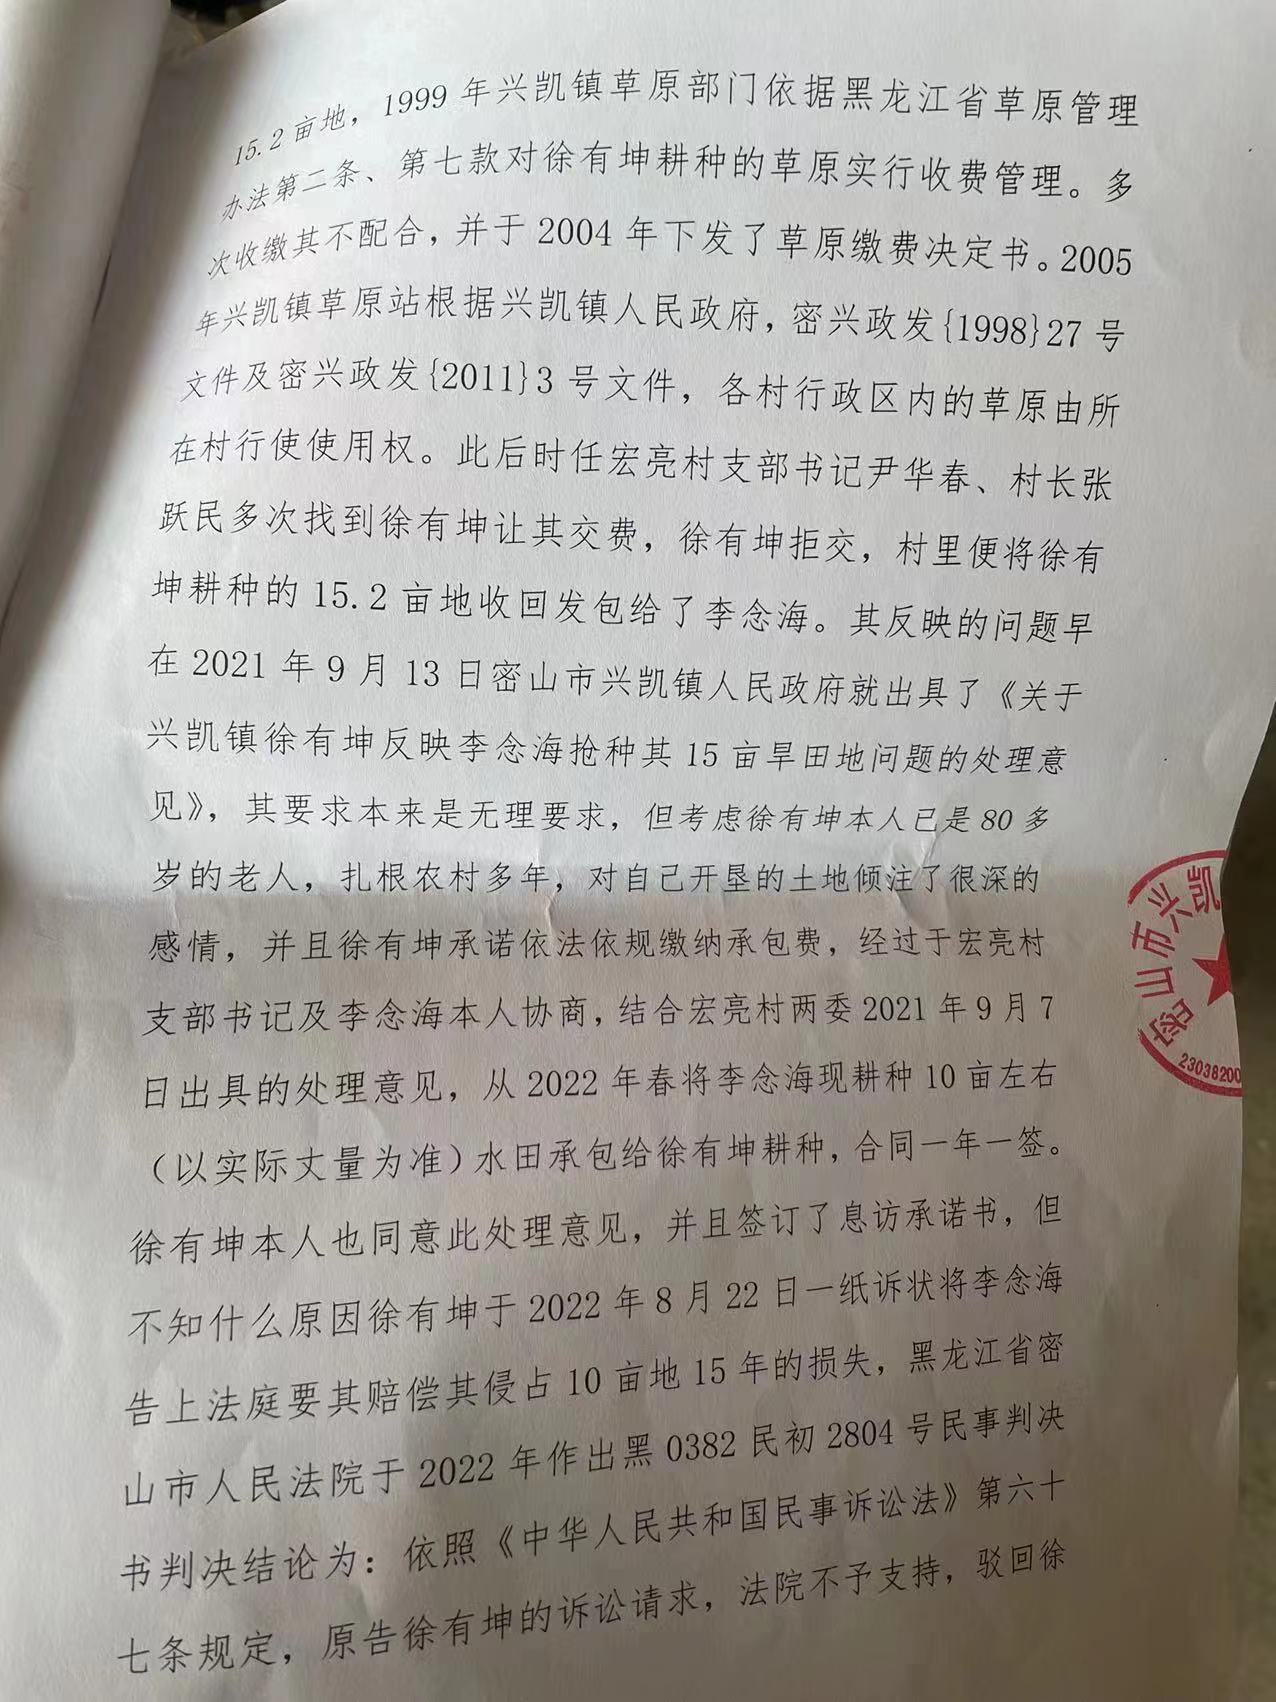 15.2亩地，1999年兴凯镇草原部门依据黑龙江省草原管理
办法第二条、第七款对徐有坤耕种的草原实行收费管理。多
次收缴其不配合，并于2004年下发了草原缴费决定书。2005
年兴凯镇草原站根据兴凯镇人民政府，密兴政发{1998}27号
文件及密兴政发{2011}3号文件，各村行政区内的草原由所
在村行使使用权。此后时任宏亮村支部书记尹华春、村长张
跃民多次找到徐有坤让其交费，徐有坤拒交，村里便将徐有
坤耕种的15.2亩地收回发包给了李念海。其反映的问题早
在2021年9月13日密山市兴凯镇人民政府就出具了《关于
兴凯镇徐有坤反映李念海抢种其15亩旱田地问题的处理意
见》，其要求本来是无理要求，但考虑徐有坤本人已是80多
岁的老人，扎根农村多年，对自己开垦的土地倾注了很深的
感情，并且徐有坤承诺依法依规缴纳承包费，经过于宏亮村
支部书记及李念海本人协商，结合宏亮村两委2021年9月7
日出具的处理意见，从2022年春将李念海现耕种10亩左右
（以实际丈量为准）水田承包给徐有坤耕种，合同一年一签。
徐有坤本人也同意此处理意见，并且签订了息访承诺书，但
不知什么原因徐有坤于2022年8月22日一纸诉状将李念海
告上法庭要其赔偿其侵占10亩地15年的损失，黑龙江省密
山市人民法院于2022年作出黑0382民初2804号民事判决
书判决结论为：依照《中华人民共和国民事诉讼法》第六十
七条规定，原告徐有坤的诉讼请求，法院不予支持，驳回徐
密山市兴凯
23038200